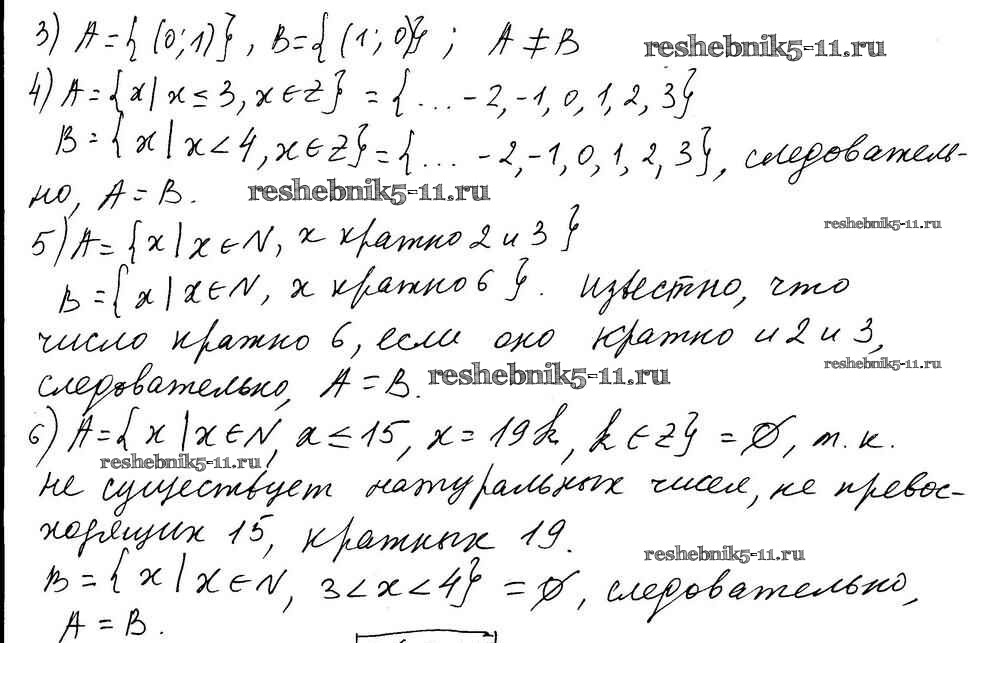 3) A={(0;1)}, B={(1;0)}; A≠B reshebnik5-11.ru
4) A={x|x≤3, x∈Z} = {...-2,-1,0,1,2,3}
B={x|x<4, x∈Z}={...-2,-1,0,1,2,3}, следователь-
но, A=B. reshebnik5-11.ru
reshebnik5-11.ru
5) A={x|x∈N, x кратно 2 и 3}
B={x|x∈N, x кратно 6}. Известно, что
число кратно 6, если оно кратно и 2 и 3,
reshebnik5-11.ru
следовательно, A=B. reshebnik5-11.ru
6) A={x|x∈N, x≤15, x=19k, k∈Z} = ∅, т.к.
reshebnik5-11.ru
не существует натуральных чисел, не превос-
ходящих 15, кратных 19.
reshebnik5-11.ru
B={x|x∈N, 3<x<4} = ∅, следовательно,
A=B.